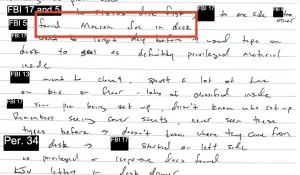 FBI 17 and 5 disk first FBI 17 to one side
FBI 5 found Macron Sex in desk
FBI 17 used to length day before - used tape on
desk to seal as definitely privileged material
inside
FBI 13 went to closet, spent a lot of time
on box on floor - lots of classified inside
FBI 17 saw pic being set up, don't know who set up
Remembers seeing cover sheets, never seen those
types before → doesn't know where they came from
Per. 34 desk → FBI 17 started on left side
no privileged or responsive docs found
KJU letters in desk drawer